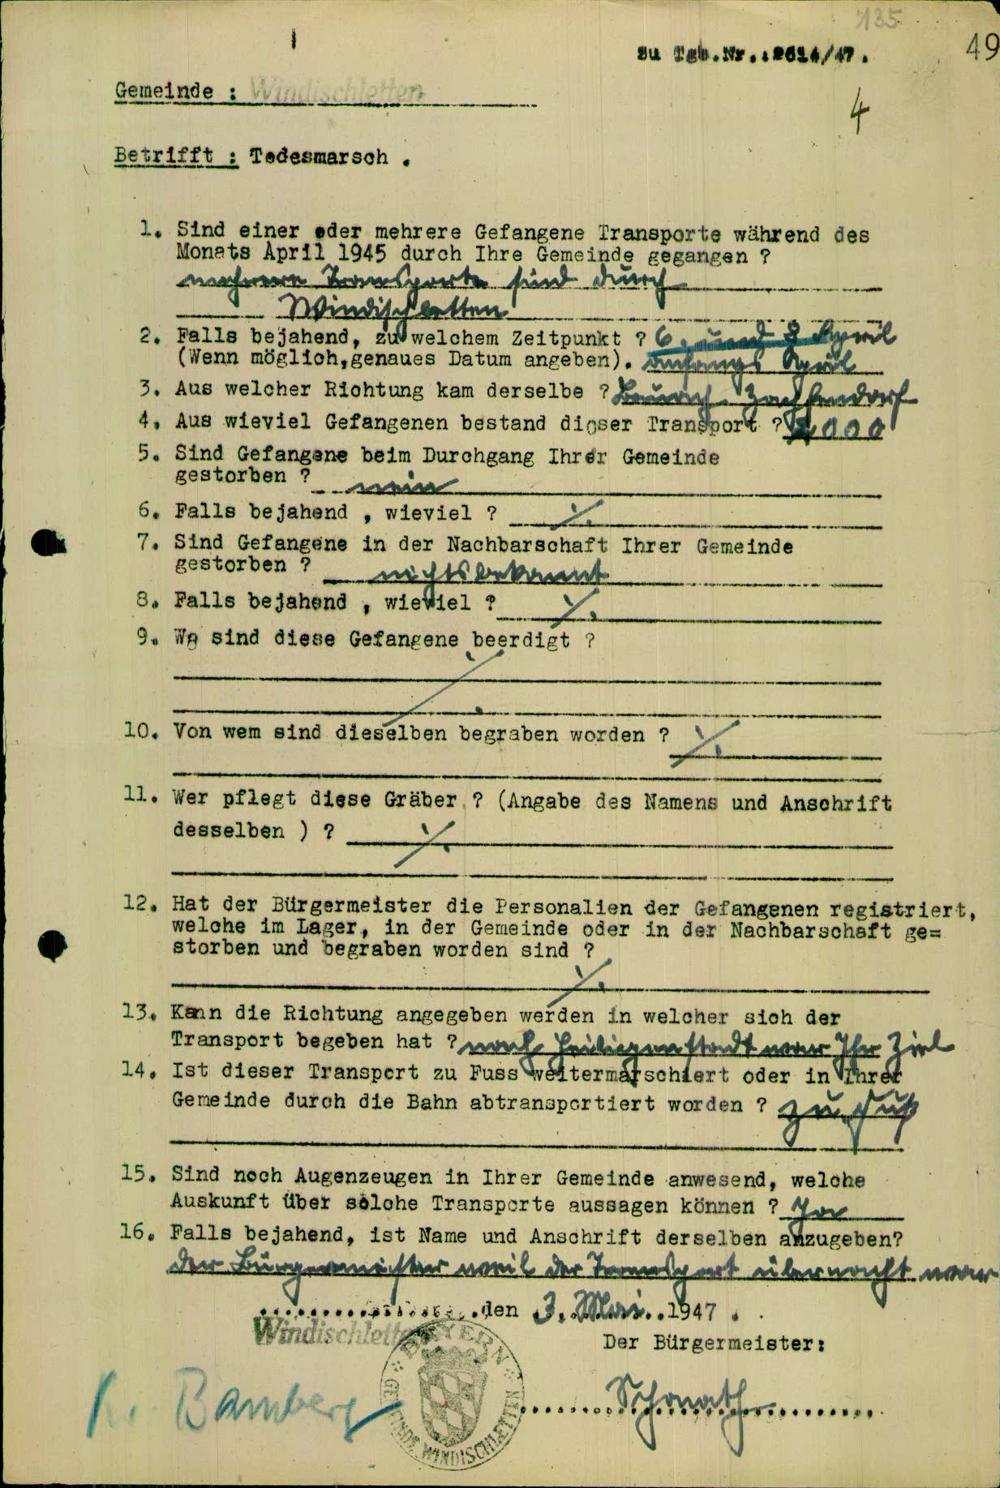 135
49
Zu Tgb.Nr.:2614/47.
Gemeinde : Windischletten
4
Betrifft : Todesmarsch .
1. Sind einer oder mehrere Gefangene Transporte während des
Monats April 1945 durch Ihre Gemeinde gegangen ?
mehrere Transporte sind durch
Windischletten
2. Falls bejahend, zu welchem Zeitpunkt ? 6. und 8 April
(Wenn möglich,genaues Datum angeben). anfangs April
3. Aus welcher Richtung kam derselbe ? Zapfendorf
4. Aus wieviel Gefangenen bestand dieser Transport ? 2000
5. Sind Gefangene beim Durchgang Ihrer Gemeinde
gestorben ? nein
6. Falls bejahend , wieviel ? ./.
7. Sind Gefangene in der Nachbarschaft Ihrer Gemeinde
gestorben ? nichts bekannt
8. Falls bejahend , wieviel ? ./.
9. Wo sind diese Gefangene beerdigt ?
./.
10. Von wem sind dieselben begraben worden ? ./.
11. Wer pflegt diese Gräber ? (Angabe des Namens und Anschrift
desselben ) ? ./.
12. Hat der Bürgermeister die Personalien der Gefangenen registriert,
welche im Lager, in der Gemeinde oder in der Nachbarschaft ge=
storben und begraben worden sind ?
./.
13. Kann die Richtung angegeben werden in welcher sich der
Transport begeben hat ? nach Heiligenstadt war Ihr Ziel
14. Ist dieser Transport zu Fuss weitermarschiert oder in Ihrer
Gemeinde durch die Bahn abtransportiert worden ? zu Fuß
15. Sind noch Augenzeugen in Ihrer Gemeinde anwesend, welche
Auskunft über solche Transporte aussagen können ? Ja
16. Falls bejahend, ist Name und Anschrift derselben anzugeben?
der Bürgermeister weil der Transport übernacht war
Windischletten, den 3. Mai 1947 .
Der Bürgermeister:
BAYERN
GEMEINDE WINDISCHLETTEN
Kr. Bamberg